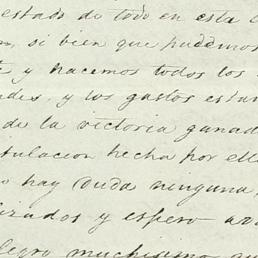 estado de todo en esta
si bien que pudemos
y hacemos todos los
y los gastos estan
de la victoria ganad
tulacion hecha por ell
hay Duda ninguna
izados y espero
legro muchisimo